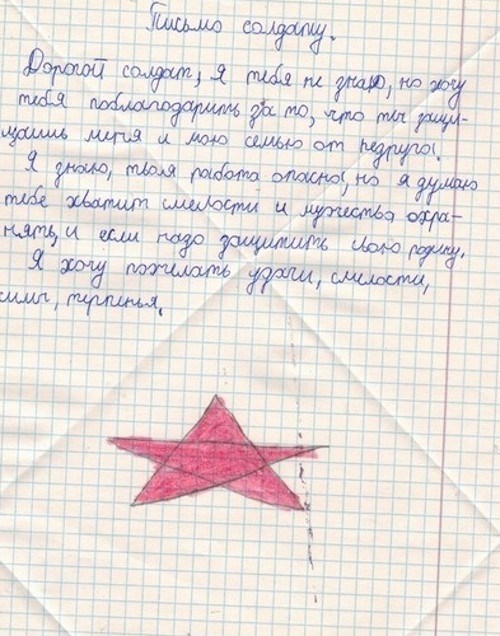 Письмо солдату.
Дорогой солдат, я тебя не знаю, но хочу
тебя поблагодарить за то, что ты защи-
щаешь меня и мою семью от недруга.
Я знаю, твоя работа опасна, но я думаю
тебе хватит смелости и мужества охра-
нять, и если надо защитить свою родину.
Я хочу пожелать удачи, смелости,
силы, терпенья.